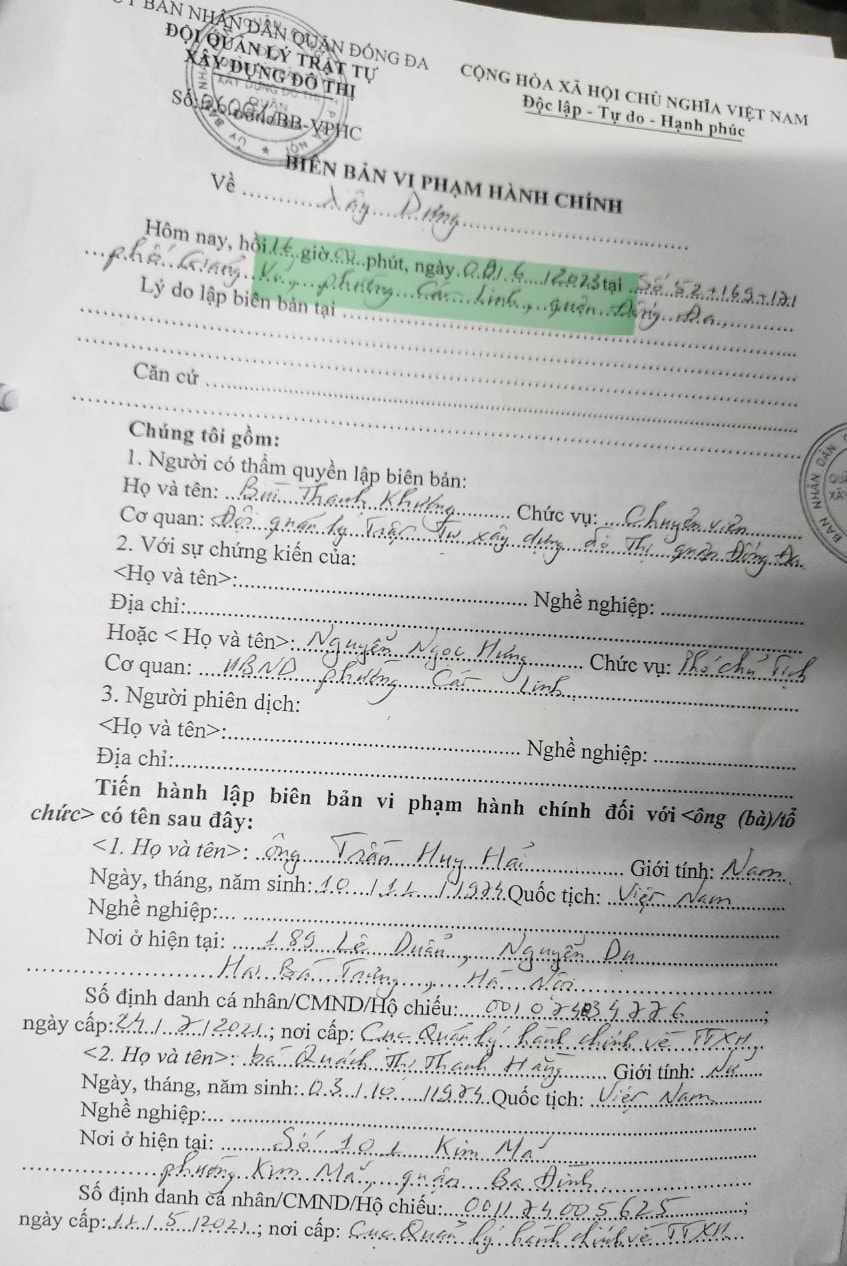 ỦY BAN NHÂN DÂN QUẬN ĐỐNG ĐA
ĐỘI QUẢN LÝ TRẬT TỰ
XÂY DỰNG ĐÔ THỊ
CỘNG HÒA XÃ HỘI CHỦ NGHĨA VIỆT NAM
Độc lập - Tự do - Hạnh phúc
Số: /BB-VPHC
BIÊN BẢN VI PHẠM HÀNH CHÍNH
Về Xây Dựng
Hôm nay, hồi giờ 00 phút, ngày 2023 tại Số 52+169+171
phố Giảng Võ, phường Cát Linh, quận Đống Đa,
Lý do lập biên bản tại
Căn cứ
Chúng tôi gồm:
1. Người có thẩm quyền lập biên bản:
Họ và tên: Bùi Thanh Khương Chức vụ: Chuyên viên
Cơ quan: Đội quản lý Trật Tự xây dựng đô Thị quận Đống Đa
2. Với sự chứng kiến của:
<Họ và tên>: Nghề nghiệp:
Địa chỉ:
Hoặc < Họ và tên>: Nguyễn Ngọc Hưng Chức vụ: Phó chủ Tịch
Cơ quan: UBND phường Cát Linh
3. Người phiên dịch:
<Họ và tên>: Nghề nghiệp:
Địa chỉ:
Tiến hành lập biên bản vi phạm hành chính đối với <ông (bà)/tổ
chức> có tên sau đây:
<1. Họ và tên>: ông Trần Huy Hải Giới tính: Nam
Ngày, tháng, năm sinh: 10/11/1974 Quốc tịch: Việt Nam
Nghề nghiệp:
Nơi ở hiện tại: 189 Lê Duẩn, Nguyễn Du
Hai Bà Trưng, Hà Nội
Số định danh cá nhân/CMND/Hộ chiếu: ;
ngày cấp: 24/2/2021; nơi cấp: Cục Quản lý hành chính về TTXH
<2. Họ và tên>: bà Quách Thị Thanh Hằng Giới tính: Nữ
Ngày, tháng, năm sinh: 03/10/1974 Quốc tịch: Việt Nam
Nghề nghiệp:
Nơi ở hiện tại: Số 101 Kim Mã
phường Kim Mã, quận Ba Đình
Số định danh cá nhân/CMND/Hộ chiếu: 001174005625;
ngày cấp: 11/5/2021; nơi cấp: Cục Quản lý hành chính về TTXH